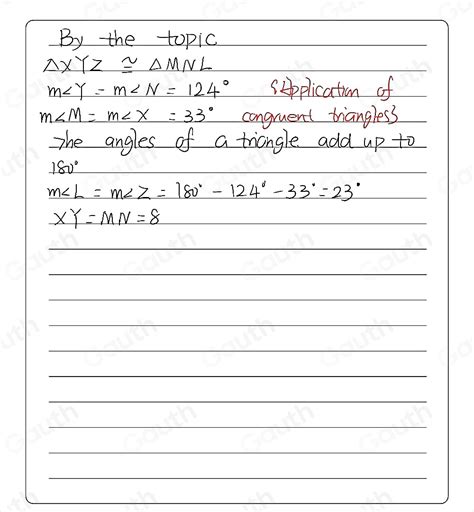 By the topic
△XYZ ≅ △MNL
m∠Y = m∠N = 124° {Application of
m∠M = m∠X = 33° congruent triangles}
The angles of a triangle add up to
180°
m∠L = m∠Z = 180° - 124° - 33° = 23°
XY = MN = 8